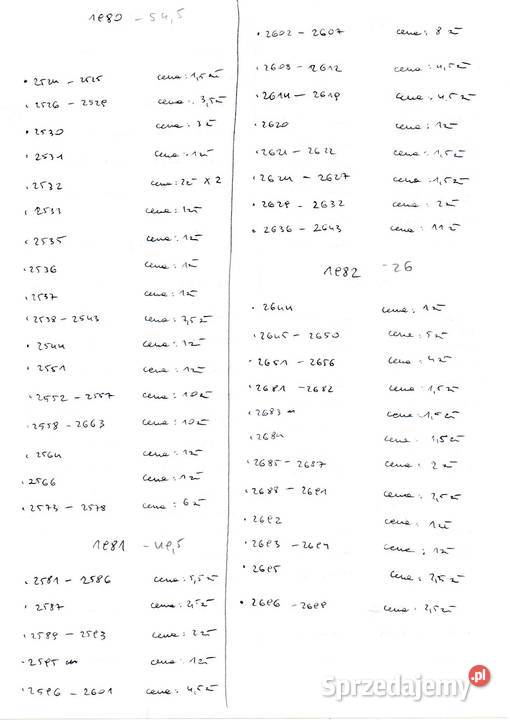 1980 - 54,5
• 2524 - 2525 cena: 1,5 zł
• 2526 - 2529 cena: 3,5 zł
• 2530 cena: 3 zł
• 2531 cena: 1 zł
• 2532 cena: 2 zł x 2
• 2533 cena: 1 zł
• 2535 cena: 1 zł
• 2536 cena: 1 zł
• 2537 cena: 1 zł
• 2538 - 2543 cena: 7,5 zł
• 2544 cena: 1 zł
• 2551 cena: 1 zł
• 2552 - 2557 cena: 10 zł
• 2558 - 2663 cena: 10 zł
• 2564 cena: 1 zł
• 2566 cena: 1 zł
• 2573 - 2578 cena: 6 zł
1981 - 49,5
• 2581 - 2586 cena: 5,5 zł
• 2587 cena: 2,5 zł
• 2589 - 2593 cena: 2 zł
• 2595 cena: 1 zł
• 2596 - 2601 cena: 4,5 zł
• 2602 - 2607 cena: 8 zł
• 2608 - 2612 cena: 4,5 zł
• 2614 - 2619 cena: 4,5 zł
• 2620 cena: 1 zł
• 2621 - 2622 cena: 1,5 zł
• 2624 - 2627 cena: 1,5 zł
• 2629 - 2632 cena: 2 zł
• 2636 - 2643 cena: 11 zł
1982 - 26
• 2644 cena: 1 zł
• 2645 - 2650 cena: 5 zł
• 2651 - 2656 cena: 4 zł
• 2681 - 2682 cena: 1,5 zł
• 2683 cena: 1,5 zł
• 2684 cena: 1,5 zł
• 2685 - 2687 cena: 2 zł
• 2688 - 2691 cena: 2,5 zł
• 2692 cena: 1 zł
• 2693 - 2694 cena: 1 zł
• 2695 cena: 2,5 zł
• 2696 - 2699 cena: 2,5 zł
Sprzedajemy.pl